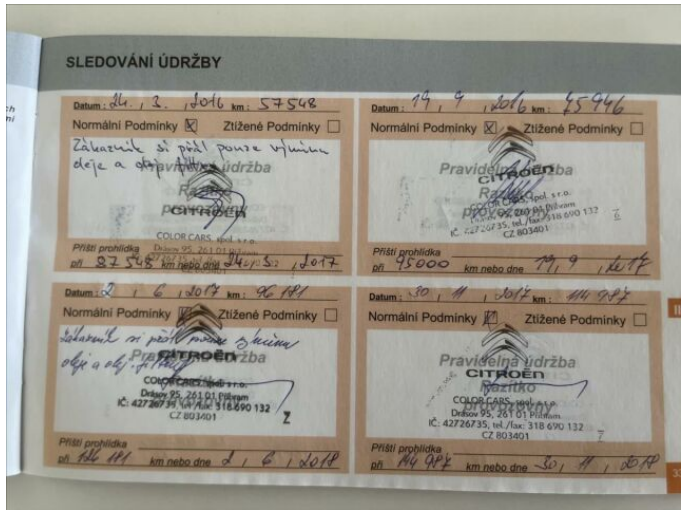 SLEDOVÁNÍ ÚDRŽBY
Datum: 24. , 3. , 2016 km: 57548
Normální Podmínky ☒ Ztížené Podmínky ☐
Zákazník si přál pouze výměnu
oleje a olej. filtru
Pravidelná údržba
Razítko
provozovny
CITROËN
COLOR CARS, spol. s r.o.
Drásov 95, 261 01 Příbram
Příští prohlídka
při 87 548 km nebo dne 24 , 3 , 2017
Datum: 19 , 9 , 2016 km: 75946
Normální Podmínky ☒ Ztížené Podmínky ☐
Pravidelná údržba
CITROËN
Razítko
provozovny
COLOR CARS, spol. s r.o.
Drásov 95, 261 01 Příbram
IČ: 42726735, tel./fax: 318 690 132
CZ 803401
Příští prohlídka
při 95000 km nebo dne 19 , 9 , 2017
Datum: 2 , 6 , 2017 km: 96 181
Normální Podmínky ☒ Ztížené Podmínky ☐
Zákazník si přál pouze výměnu
oleje a olej. filtru
Pravidelná údržba
CITROËN
COLOR CARS, spol. s r.o.
Drásov 95, 261 01 Příbram
IČ: 42726735, tel./fax: 318 690 132
CZ 803401
Z
Příští prohlídka
při 126 181 km nebo dne 2 , 6 , 2018
Datum: 30 , 11 , 2017 km: 114 987
Normální Podmínky ☒ Ztížené Podmínky ☐
Pravidelná údržba
CITROËN
Razítko
provozovny
COLOR CARS, spol. s r.o.
Drásov 95, 261 01 Příbram
IČ: 42726735, tel./fax: 318 690 132
CZ 803401
Příští prohlídka
při 144 987 km nebo dne 30 , 11 , 2018